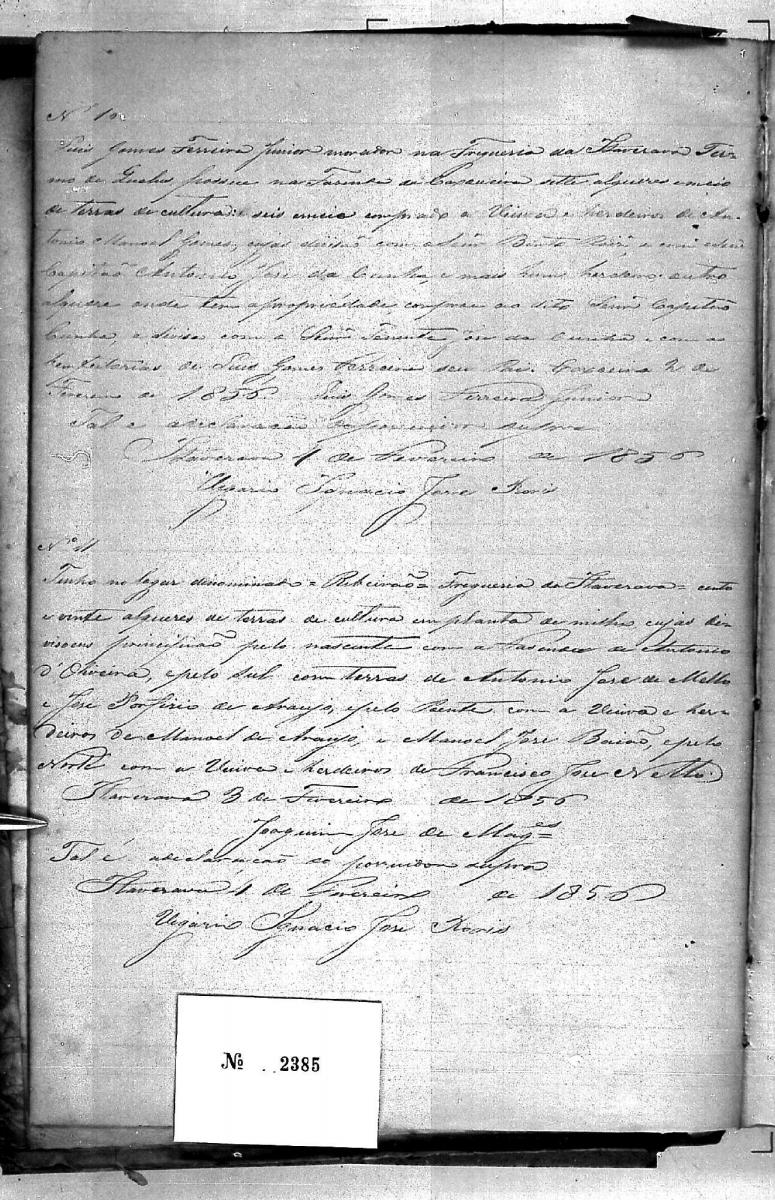 Nº 10
Luis Gomes Ferreira Junior morador na Freguesia da Itaverava Ter-
mo de Queluz possue na Fasenda da Capoeira sette alqueres emeio
de terras de cultura: seis emeio comprado a Viuva e herdeiros de An-
tonio Manoel Gomes, cujas divisão com o Senr Bento
Capitão Antonio José da Cunha, e mais huns herdeiros: outro
alquere onde tem a propriedade, comprou ao dito Senr Capitão
Cunha, e divisa com o Senr Tenente José da Cunha e com as
benfeitorias de Luis Gomes Ferreira seu Pai. Capoeira 2 de
Fevereiro de 1856 Luis Gomes Ferreira Junior
Tal é a declaração do possuidor supra
Itaverava 4 de Fevereiro de 1856
Vigario Ignacio José
Nº 11
Tenho no logar denominado = Ribeirão = Freguesia da Itaverava = cento
e vinte alqueres de terras de cultura em planta de milho cujas di-
visoens principião pelo nascente com a Fasenda de Antonio
d'Oliveira, epelo Sul com terras de Antonio José de Mello
e José Porfirio de Araujo, epelo Poente com a Viuva e her-
deiros de Manoel de Araujo, e Manoel José Baião, epelo
Norte com a Viuva e herdeiros de Francisco José Netto.
Itaverava 3 de Fevereiro de 1856
Joaquim José de Mag.es
Tal é a declaração do possuidor supra
Itaverava 4 de Fevereiro de 1856
Vigario Ignacio José
Nº 2385